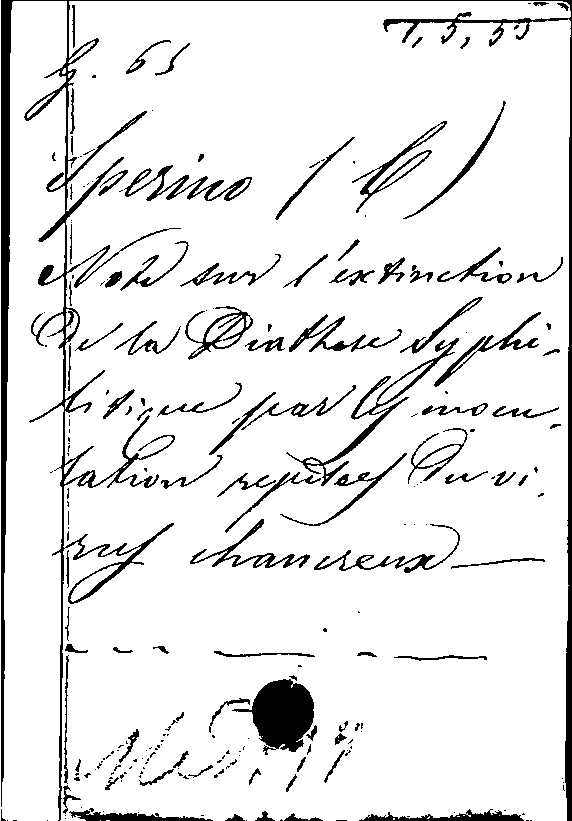 7, 5, 53
G. 65
Sperino (C)
Note sur l'extinction
de la Diathese Syphi-
litique par les inocu-
lation reputees du vi-
rus chancreux —
Med.